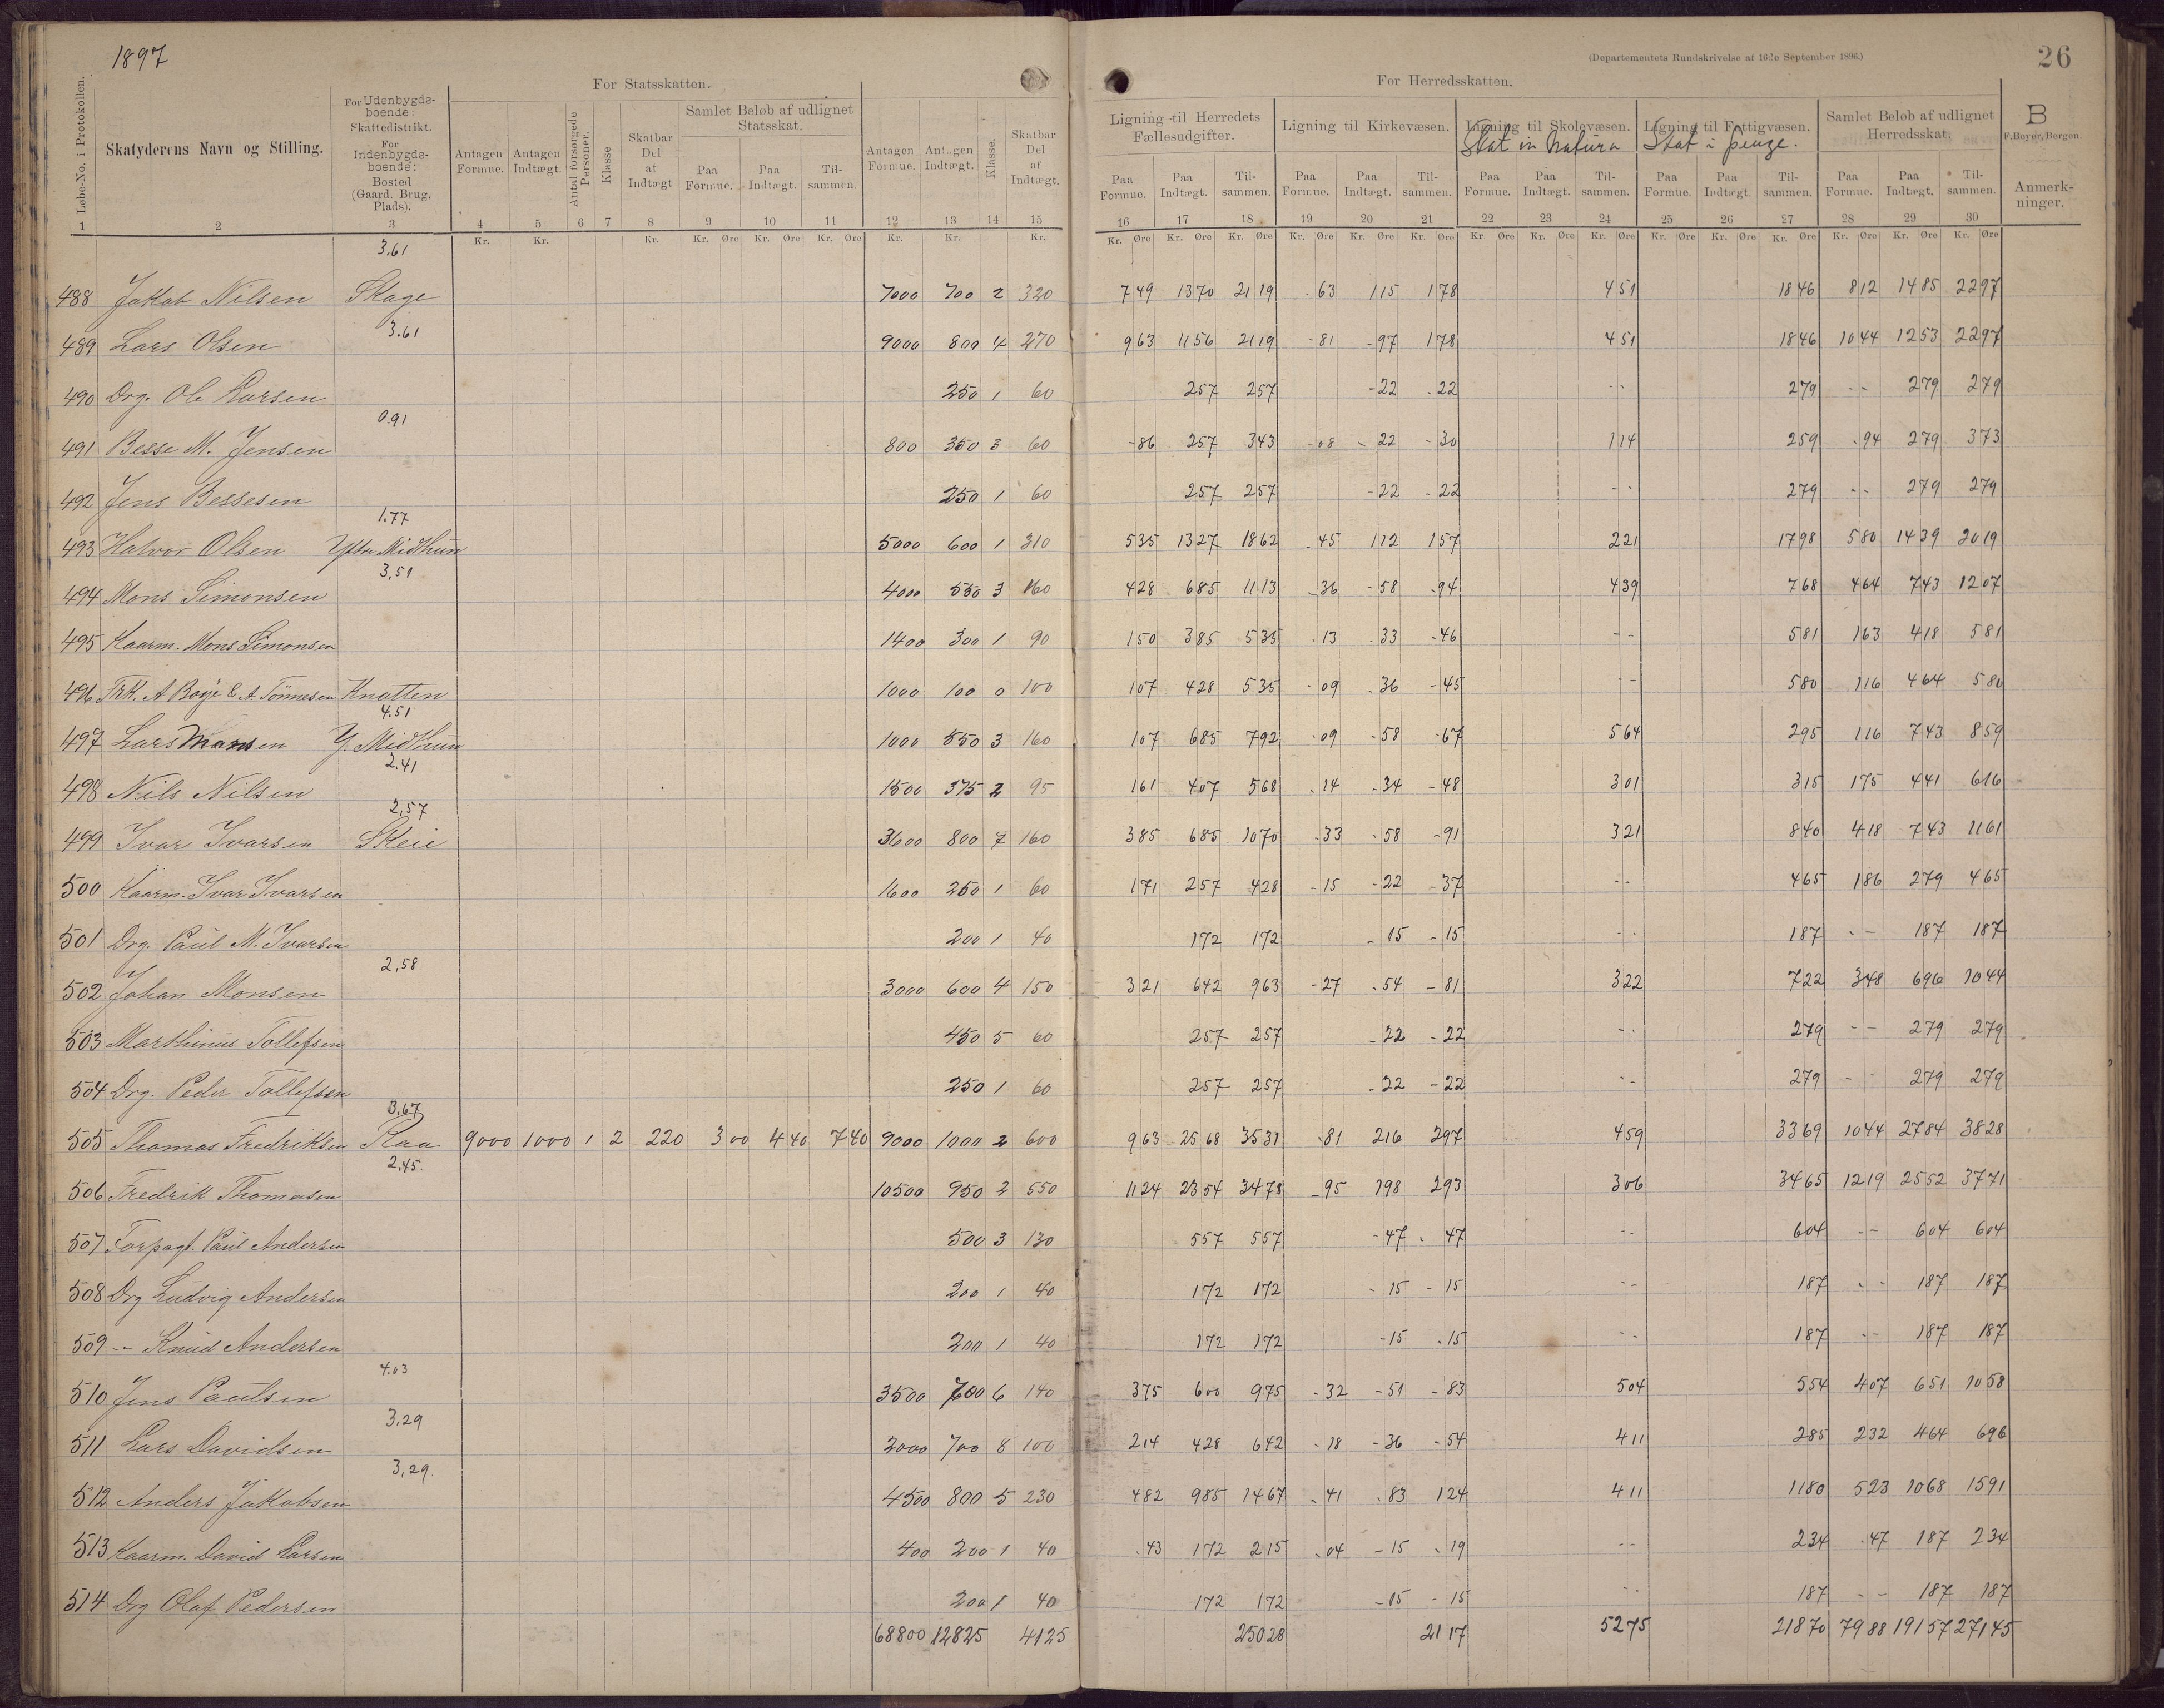 1897
(Departementets Rundskrivelse af 16de September 1896.)
26
For Statsskatten.
For Herredsskatten.
B
F. Beyer, Bergen.
Løbe-No. i Protokollen.
Skatyderens Navn og Stilling.
For Udenbygds-boende: Skattedistrikt. For Indenbygds-boende: Bosted (Gaard, Brug, Plads).
Antagen Formue.
Antagen Indtægt.
Antal forsørgede Personer.
Klasse
Skatbar Del af Indtægt
Samlet Beløb af udlignet Statsskat.
Paa Formue. Paa Indtægt. Til-sammen.
Antagen Formue. Antagen Indtægt. Klasse. Skatbar Del af Indtægt.
Ligning til Herredets Fællesudgifter.
Ligning til Kirkevæsen.
Ligning til Skolevæsen.
Skat in natura
Ligning til Fattigvæsen.
Skat i penge.
Samlet Beløb af udlignet Herredsskat.
Paa Formue. Paa Indtægt. Til-sammen. Paa Formue. Paa Indtægt. Til-sammen. Paa Formue. Paa Indtægt. Til-sammen. Paa Formue. Paa Indtægt. Til-sammen. Paa Formue. Paa Indtægt. Til-sammen.
Anmerk-ninger.
1 2 3 4 5 6 7 8 9 10 11 12 13 14 15 16 17 18 19 20 21 22 23 24 25 26 27 28 29 30
Kr. Kr. Kr. Kr. Øre Kr. Øre Kr. Øre Kr. Kr. Kr. Kr. Øre Kr. Øre Kr. Øre Kr. Øre Kr. Øre Kr. Øre Kr. Øre Kr. Øre Kr. Øre Kr. Øre Kr. Øre Kr. Øre Kr. Øre Kr. Øre Kr. Øre
3.61
488 Jakob Nilsen Skage 7000 700 2 320 749 1370 2119 .63 115 178 451 1846 812 1485 2297
3.61
489 Lars Olsen 9000 800 4 270 963 1156 2119 -81 -97 178 451 1846 1044 1253 2297
490 Drg. Ole Larsen 250 1 60 257 257 -22 .22 -- 279 -- 279 279
0.91
491 Besse M. Jensen 800 350 3 60 -86 257 343 -08 -22 -30 114 259 .94 279 373
492 Jens Bessesen 250 1 60 257 257 -22 -22 -- 279 -- 279 279
1.77
493 Halvor Olsen Yttre Midthun 5000 600 1 310 535 1327 1862 .45 112 157 221 1798 580 1439 2019
3,51
494 Mons Simonsen 4000 550 3 160 428 685 1113 -36 -58 -94 439 768 464 743 1207
495 Kaarm. Mons Simonsen 1400 300 1 90 150 385 535 .13 .33 -46 -- 581 163 418 581
496 Frk. A Boye & A Tönnesen Knatten 1000 100 0 100 107 428 535 -09 .36 -45 -- 580 116 464 580
4.51
497 Lars Monsen Y. Midthun 1000 550 3 160 107 685 792 -09 -58 -67 564 295 116 743 859
2.41
498 Nils Nilsen 1500 375 2 95 161 407 568 -14 -34 -48 301 315 175 441 616
2,57
499 Ivar Ivarsen Skeie 3600 800 7 160 385 685 1070 -33 -58 -91 321 840 418 743 1161
500 Kaarm. Ivar Ivarsen 1600 250 1 60 171 257 428 -15 -22 -37 -- 465 186 279 465
501 Drg. Paul M. Ivarsen 200 1 40 172 172 -15 -15 -- 187 -- 187 187
2,58
502 Johan Monsen 3000 600 4 150 321 642 963 -27 .54 -81 322 722 348 696 1044
503 Marthinus Tollefsen 450 5 60 257 257 -22 -22 -- 279 -- 279 279
504 Drg. Peder Tollefsen 250 1 60 257 257 -22 -22 -- 279 -- 279 279
3.67
505 Thomas Fredriksen Raa 9000 1000 1 2 220 3 00 4 40 7 40 9000 1000 2 600 963 2568 3531 .81 216 297 459 3369 1044 2784 3828
2.45.
506 Fredrik Thomasen 10500 950 2 550 1124 2354 3478 -95 198 293 306 3465 1219 2552 3771
507 Forpagt. Paul Andersen 500 3 130 557 557 -47 . 47 -- 604 -- 604 604
508 Drg Ludvig Andersen 200 1 40 172 172 - 15 - 15 -- 187 -- 187 187
509 -- Knud Andersen 200 1 40 172 172 -15 .15 -- 187 -- 187 187
4.03
510 Jens Paulsen 3500 700 6 140 375 600 975 -32 -51 -83 504 554 407 651 1058
3.29
511 Lars Davidsen 2000 700 8 100 214 428 642 -18 -36 -54 411 285 232 464 696
3,29.
512 Anders Jakobsen 4500 800 5 230 482 985 1467 .41 .83 124 411 1180 523 1068 1591
513 Kaarm. David Larsen 400 200 1 40 .43 172 215 .04 -15 .19 -- 234 .47 187 234
514 Drg Olaf Pedersen 200 1 40 172 172 -15 - 15 -- 187 -- 187 187
68800 12825 4125 25028 2117 5275 21870 7988 19157 27145